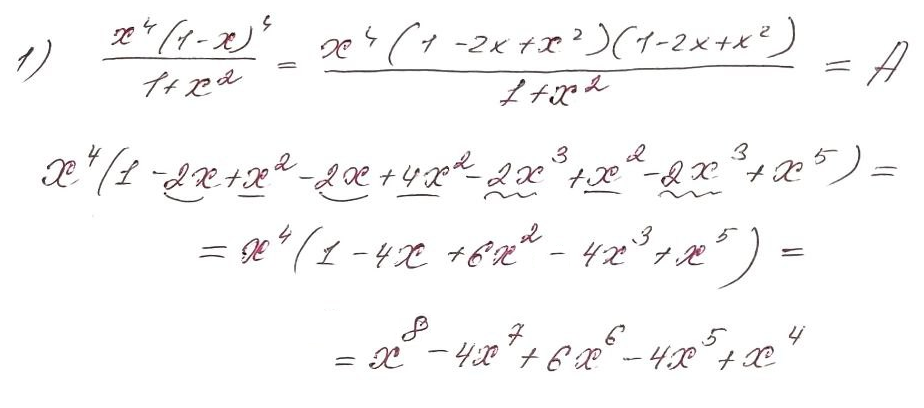 1) x⁴(1-x)⁴ / 1+x² = x⁴(1-2x+x²)(1-2x+x²) / 1+x² = A
x⁴(1-2x+x²-2x+4x²-2x³+x²-2x³+x⁵)=
=x⁴(1-4x+6x²-4x³+x⁵)=
=x⁸-4x⁷+6x⁶-4x⁵+x⁴